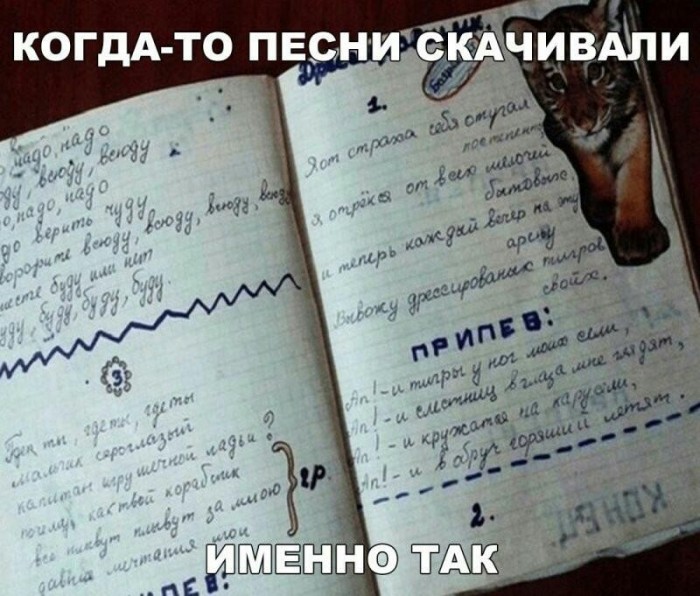 КОГДА-ТО ПЕСНИ СКАЧИВАЛИ
надо, надо
всюду, всюду
надо, надо
верить чуду
всюду, всюду, всюду, всюду
буду или нет
буду, буду, буду, буду.
3
где ты, где ты
мальчик сероглазый
капитан игрушечной ладьи?
почему, как твой кораблик
все плывут плывут за мною
давние мечтания мои
2р.
ПРИПЕВ:
1.
Хоть страха себя отучал
постепенно
я отрёкся от всех мелочей
бытовых,
и теперь каждый вечер на эту
арену
Вывожу дрессированных тигров
своих.
ПРИПЕВ:
Ап! - и тигры у ног моих сели,
Ап! - и с лестниц в глаза мне глядят,
Ап! - и кружатся на карусели,
Ап! - и в обруч горящий летят.
2.
КОНЕЦ
ИМЕННО ТАК